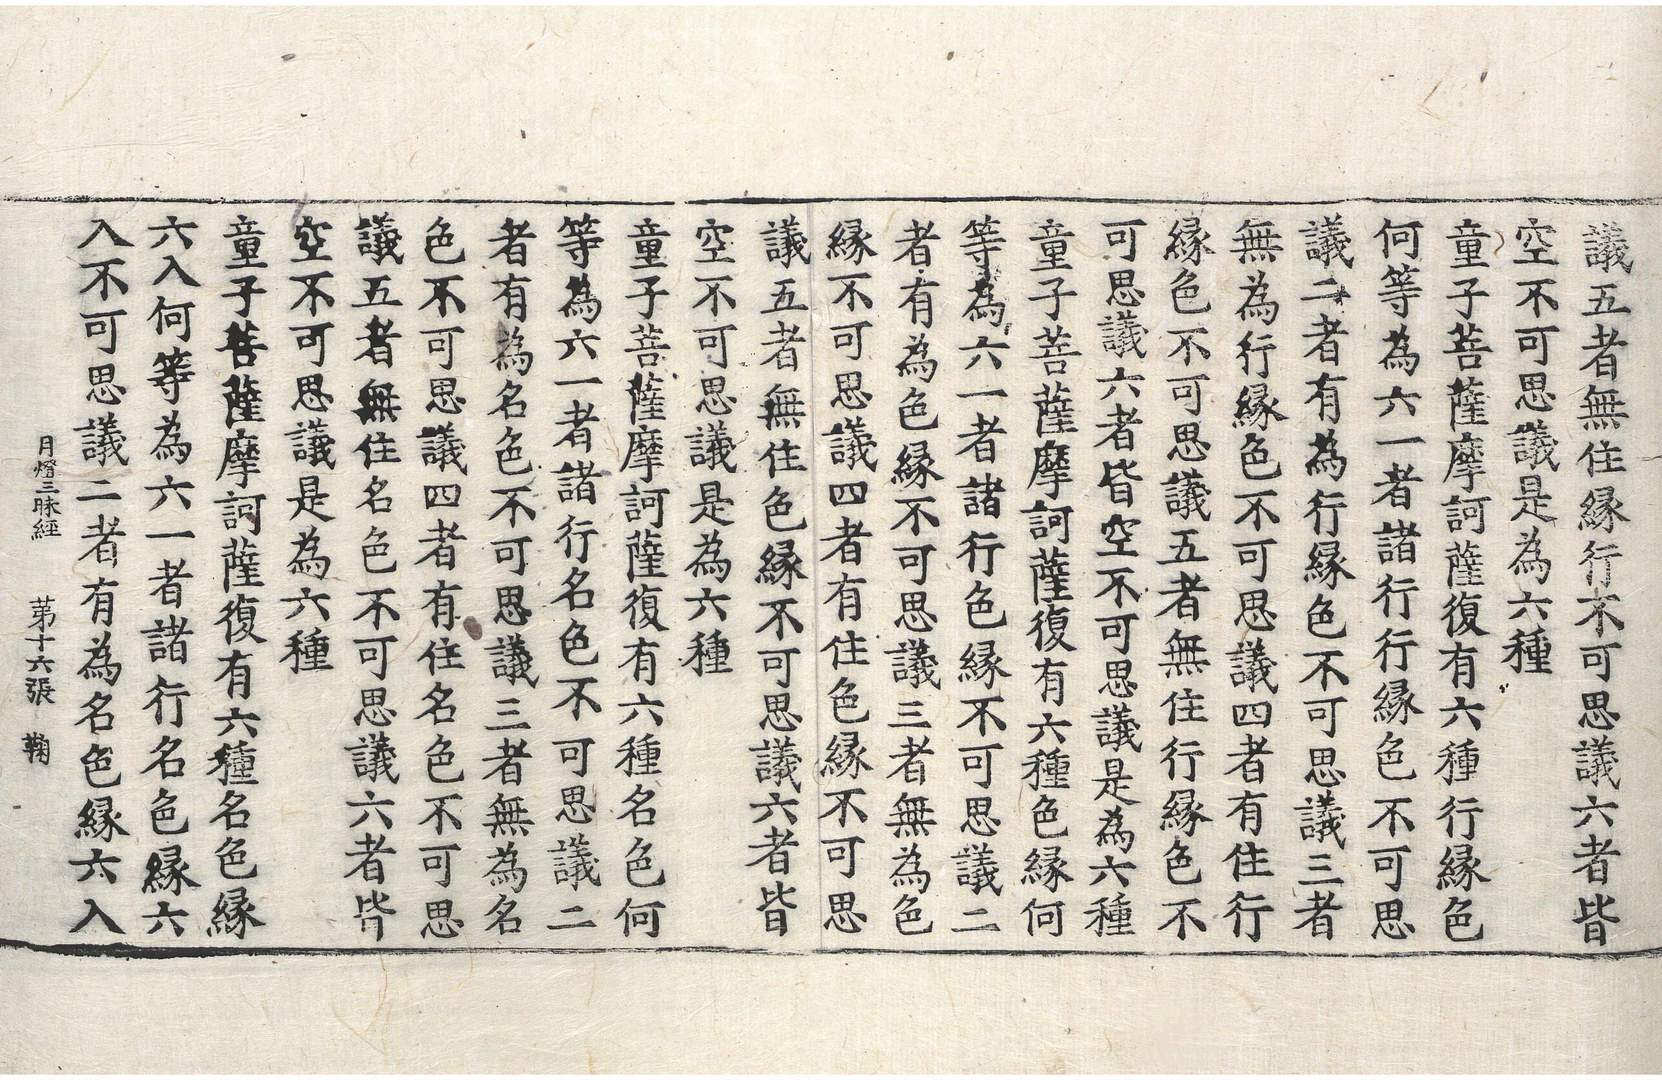 議五者無住緣行不可思議六者皆
空不可思議是為六種
童子菩薩摩訶薩復有六種行緣色
何等為六一者諸行行緣色不可思
議二者有為行緣色不可思議三者
無為行緣色不可思議四者有住行
緣色不可思議五者無住行緣色不
可思議六者皆空不可思議是為六種
童子菩薩摩訶薩復有六種色緣何
等為六一者諸行色緣不可思議二
者有為色緣不可思議三者無為色
緣不可思議四者有住色緣不可思
議五者無住色緣不可思議六者皆
空不可思議是為六種
童子菩薩摩訶薩復有六種名色何
等為六一者諸行名色不可思議二
者有為名色不可思議三者無為名
色不可思議四者有住名色不可思
議五者無住名色不可思議六者皆
空不可思議是為六種
童子菩薩摩訶薩復有六種名色緣
六入何等為六一者諸行名色緣六
入不可思議二者有為名色緣六入
月燈三昧經 第十六張 鞠